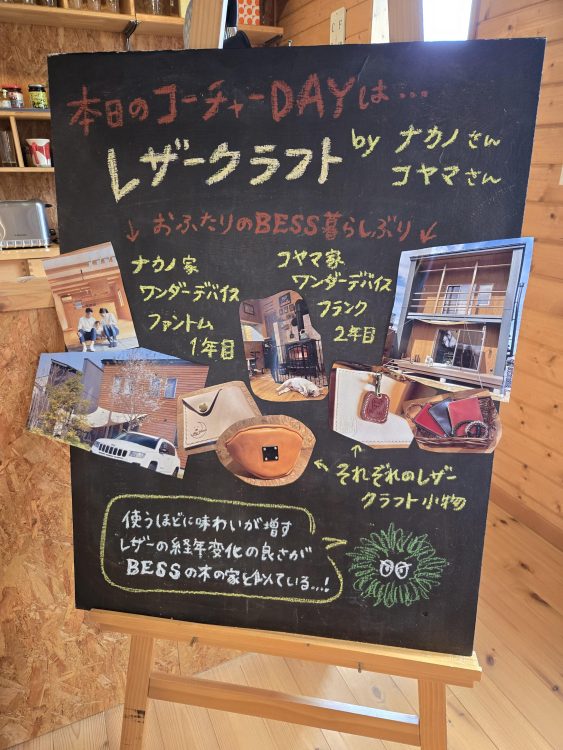 本日のコーチャーDAYは…
レザークラフト
by ナカノさん
コヤマさん
↓ おふたりのBESS暮らしぶり ↙
ナカノ家
ワンダーデバイス
ファントム
1年目
コヤマ家
ワンダーデバイス
フランク
2年目
それぞれのレザー
クラフト小物
使うほどに味わいが増す
レザーの経年変化の良さが
BESSの木の家と似ている…!